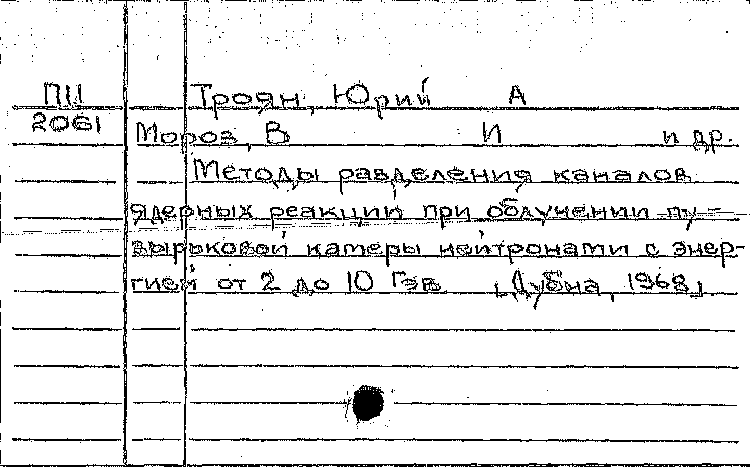 ПЦ Троян, Юрий А
2061 Мороз, В И и др.
Методы разделения каналов
ядерных реакций при облучении пу-
зырьковой камеры нейтронами с энер-
гией от 2 до 10 Гэв [Дубна, 1968].